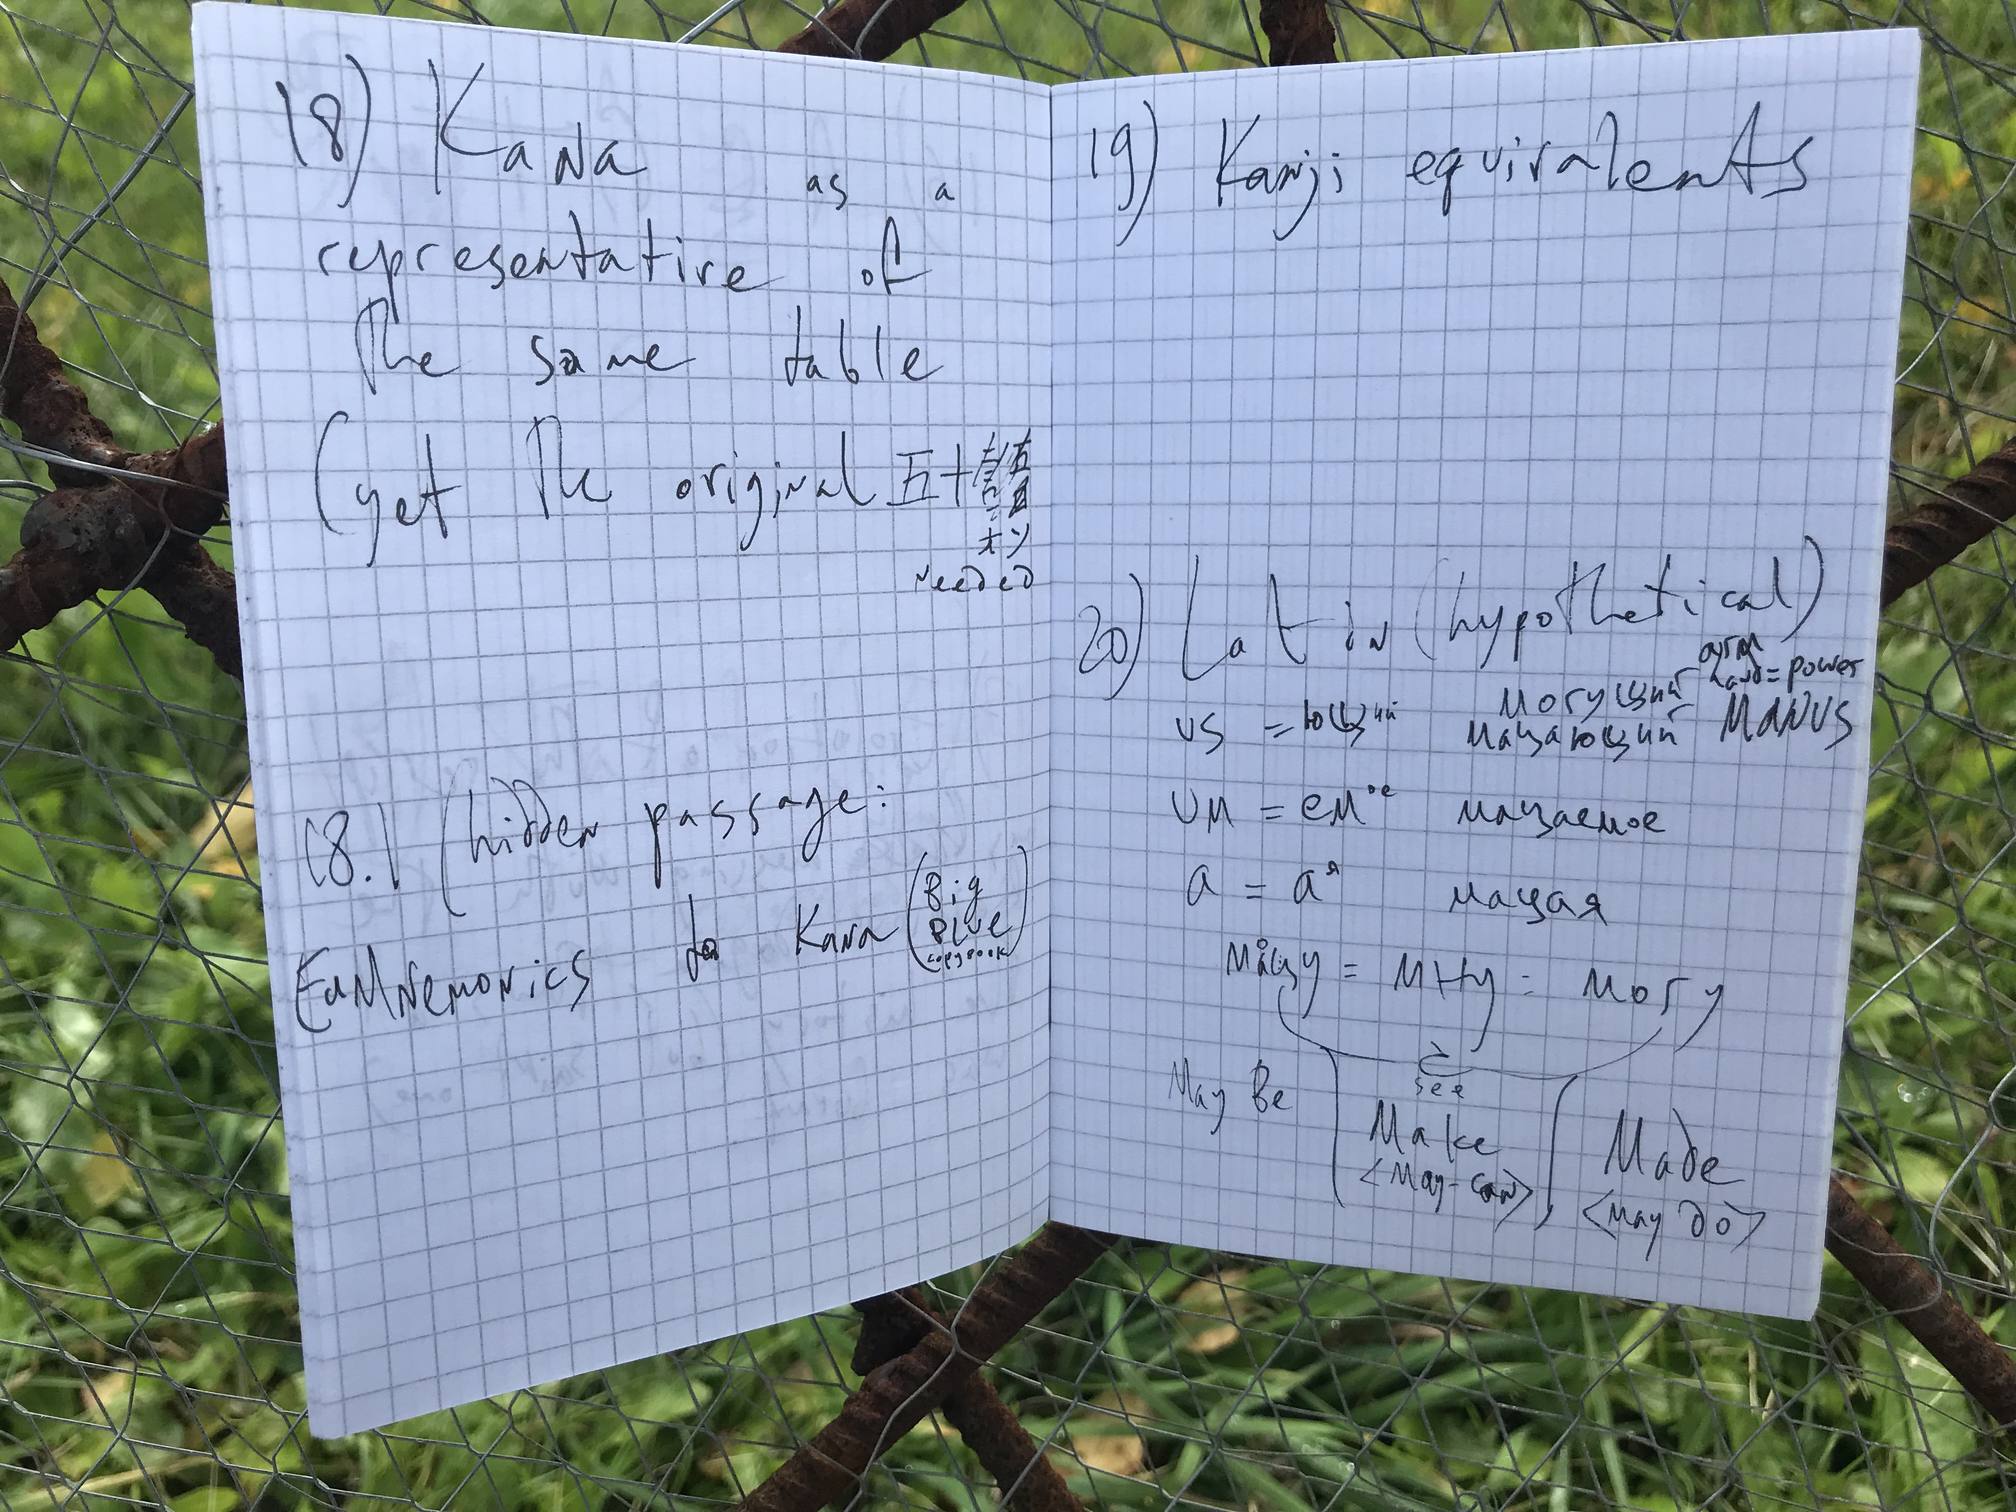 18) Kana as a
representative of
The same table
(get The original 五十
needed
18.1 (hidden passage:
EaMNemonics to Kana (Big
Blue
copybook)
19) Kanji equivalents
20) Latin (hypothetical)
arm
hand = power
могущий
us = ющий мащающий Manus
um = емое мащаемое
a = ая мащая
мащу = мну = могу
see
May Be
Make
<May-can>
Made
<may do>